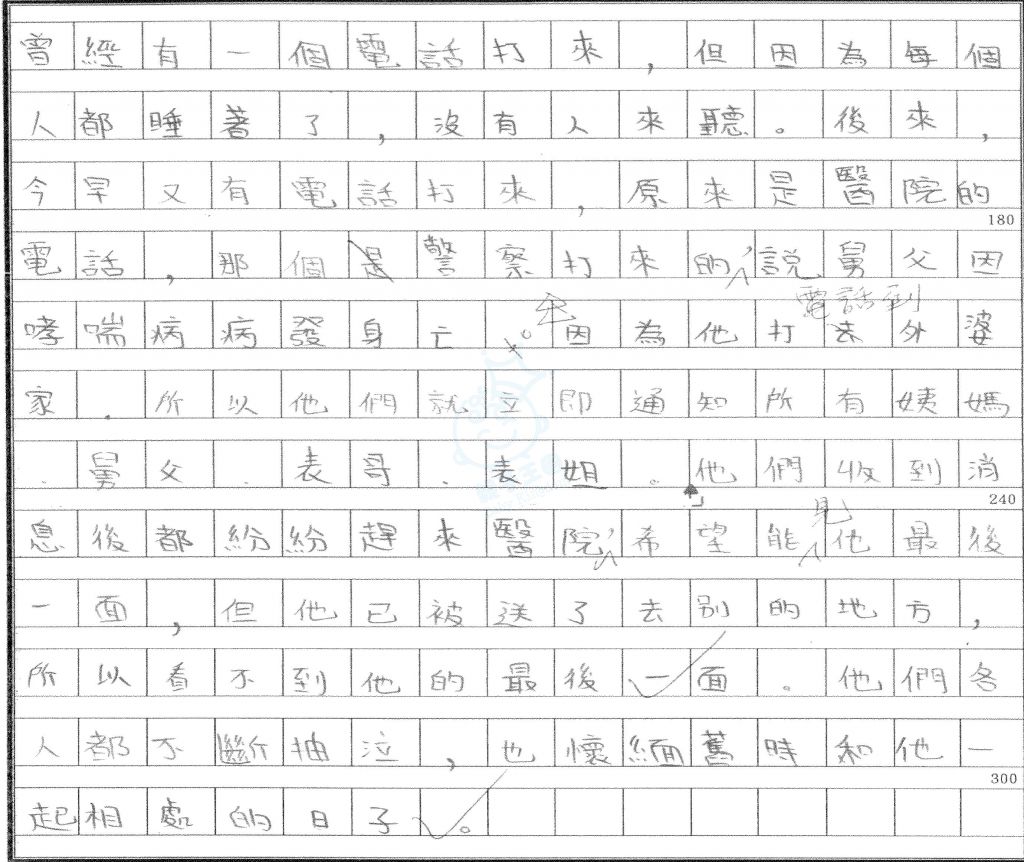 曾經有一個電話打來，但因為每個
人都睡著了，沒有人來聽。後來，
今早又有電話打來，原來是醫院的
180
電話，那個是警察打來的，說舅父因
電話到
哮喘病病發身亡。因為他打去外婆
家．所以他們就立即通知所有姨媽
．舅父．表哥．表姐。他們收到消
240
見
息後都紛紛趕來醫院，希望能他最後
一面，但他已被送了去別的地方，
所以看不到他的最後一面。他們各
人都不斷抽泣，也懷緬舊時和他一
300
起相處的日子。